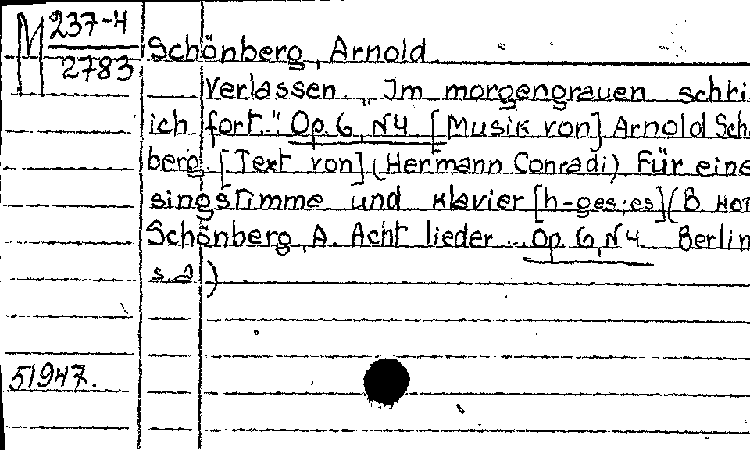 М 237-4
2783
Schönberg, Arnold
Verlassen. „Im morgengrauen schri
ich fort." Op. 6, N4 [Musik von] Arnold Sch
berg. [Text von] (Hermann Conradi) Für eine
singstimme und Klavier [h-ges;es] (В нот
Schönberg, A. Acht lieder... Op. 6, N4 Berlin
s.a)
51947.